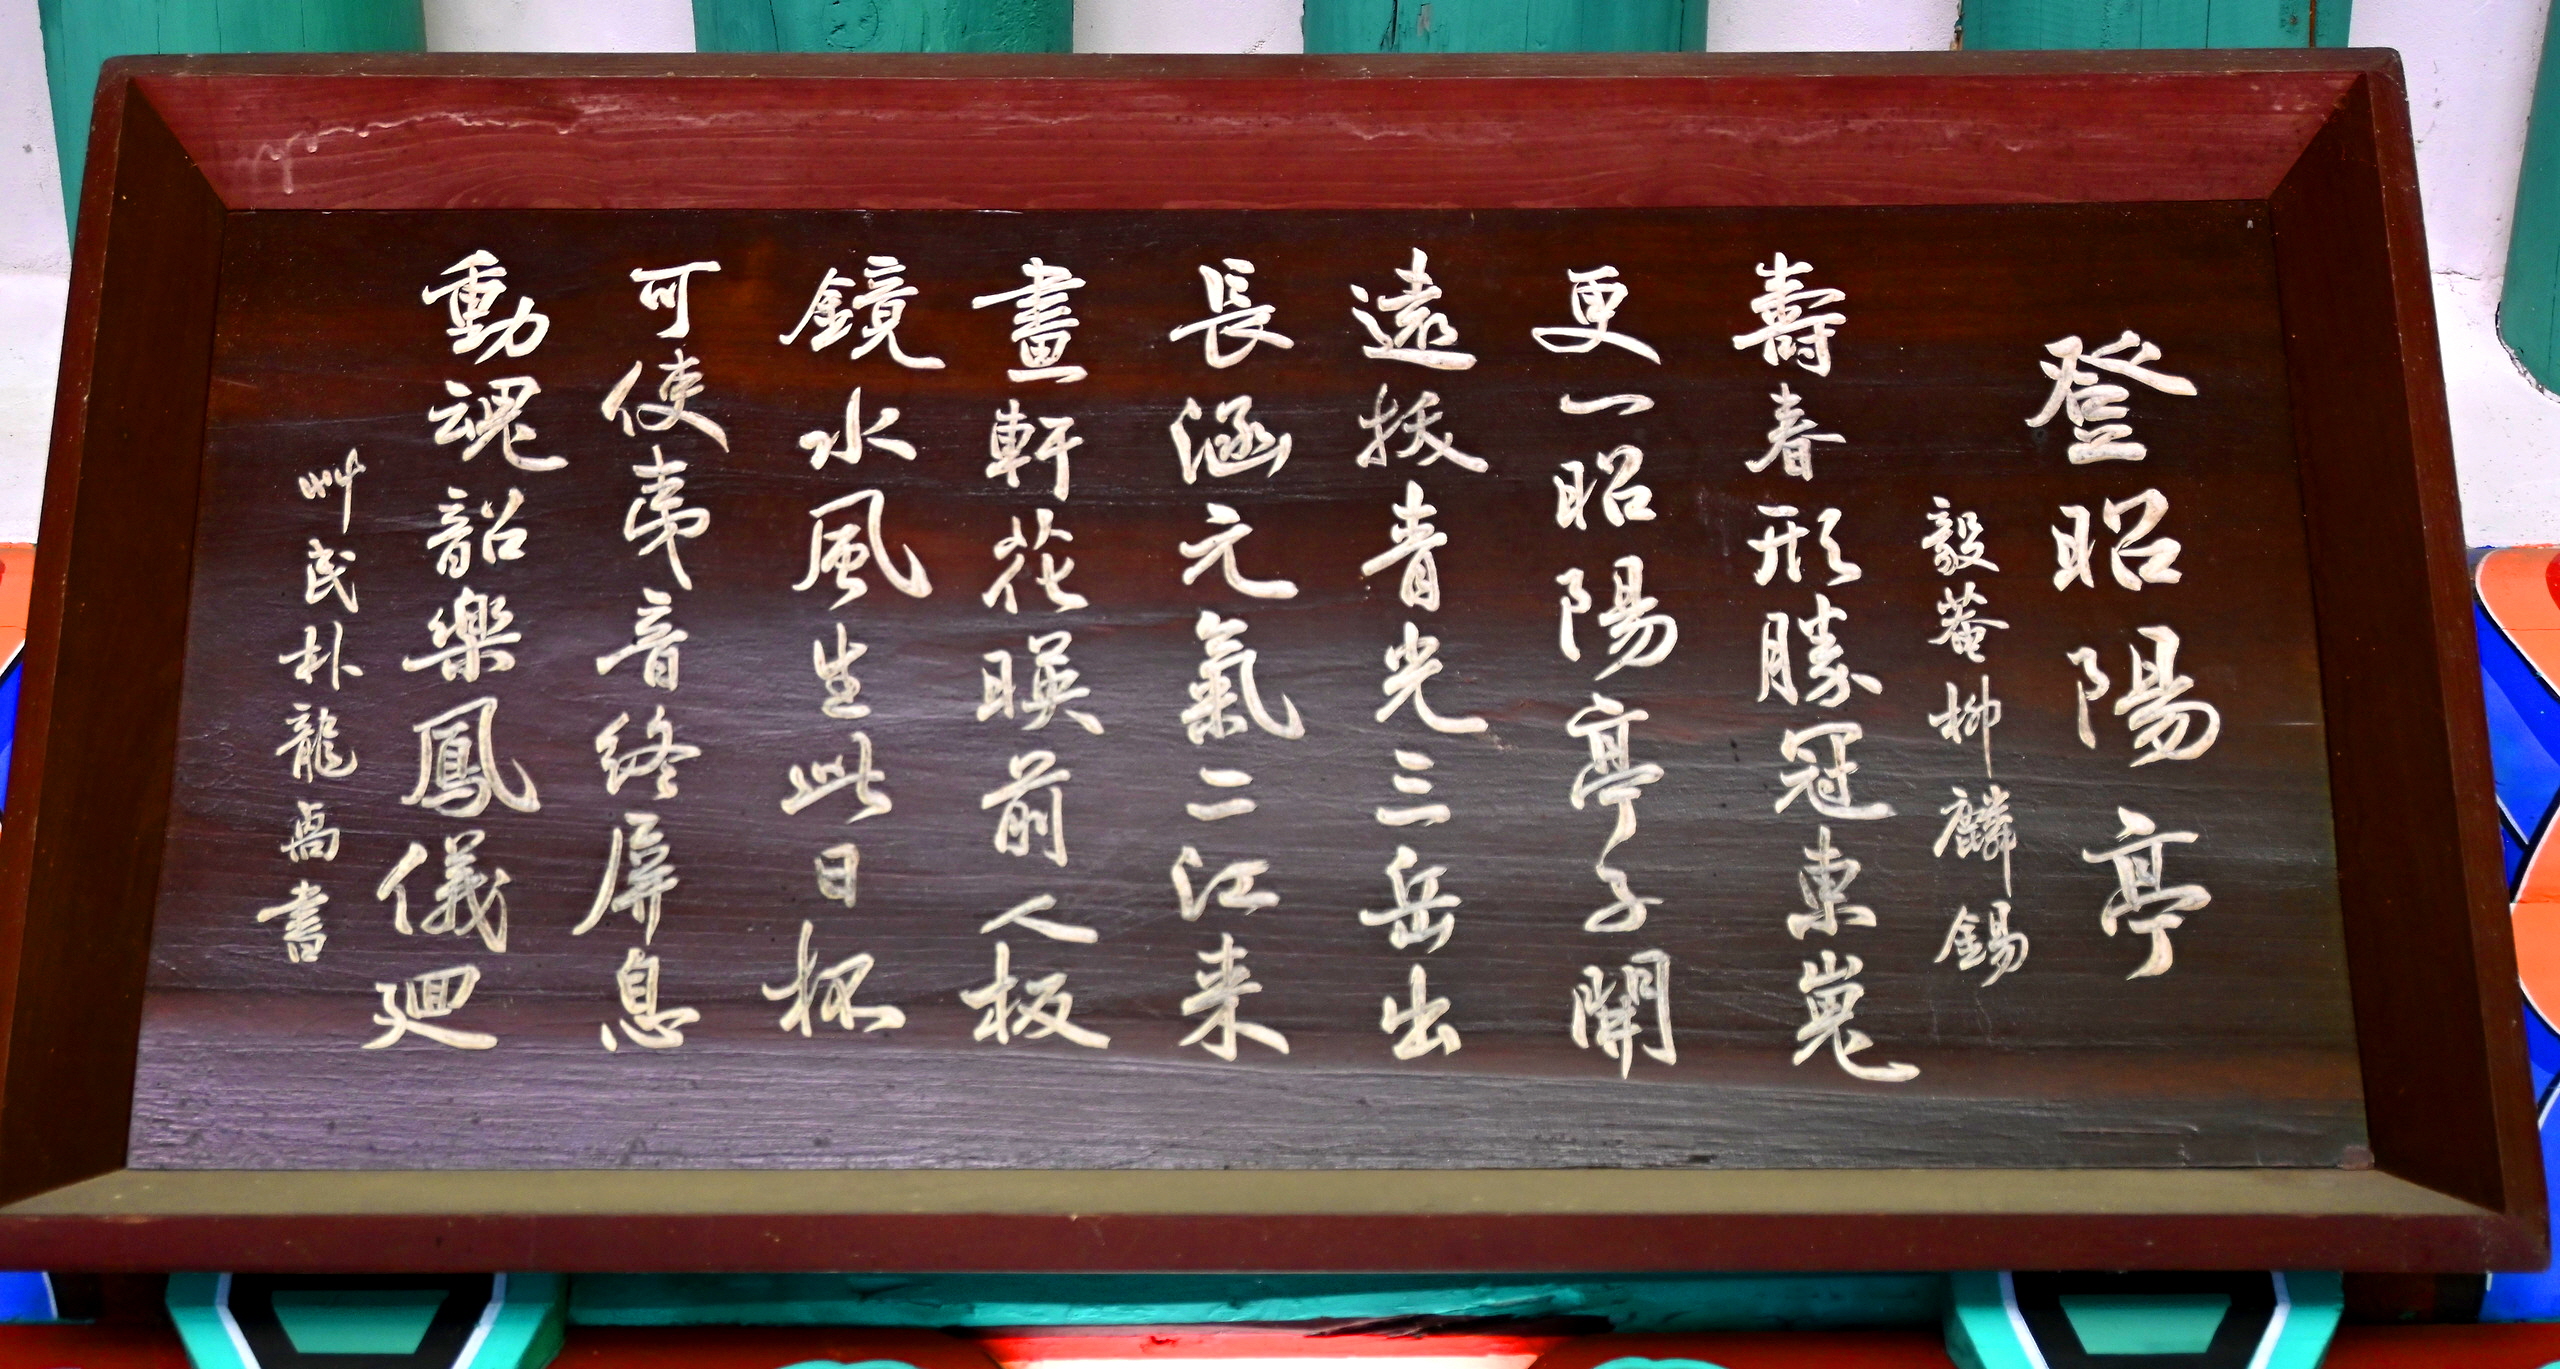 登昭陽亭
毅菴柳麟錫
壽春形勝冠東嵬
更一昭陽亭子開
遠挹青光三岳出
長涵元氣二江来
畫軒花暎前人板
鏡水風生此日杯
可使夷音終屏息
動魂韶樂鳳儀廻
艸民朴龍卨書